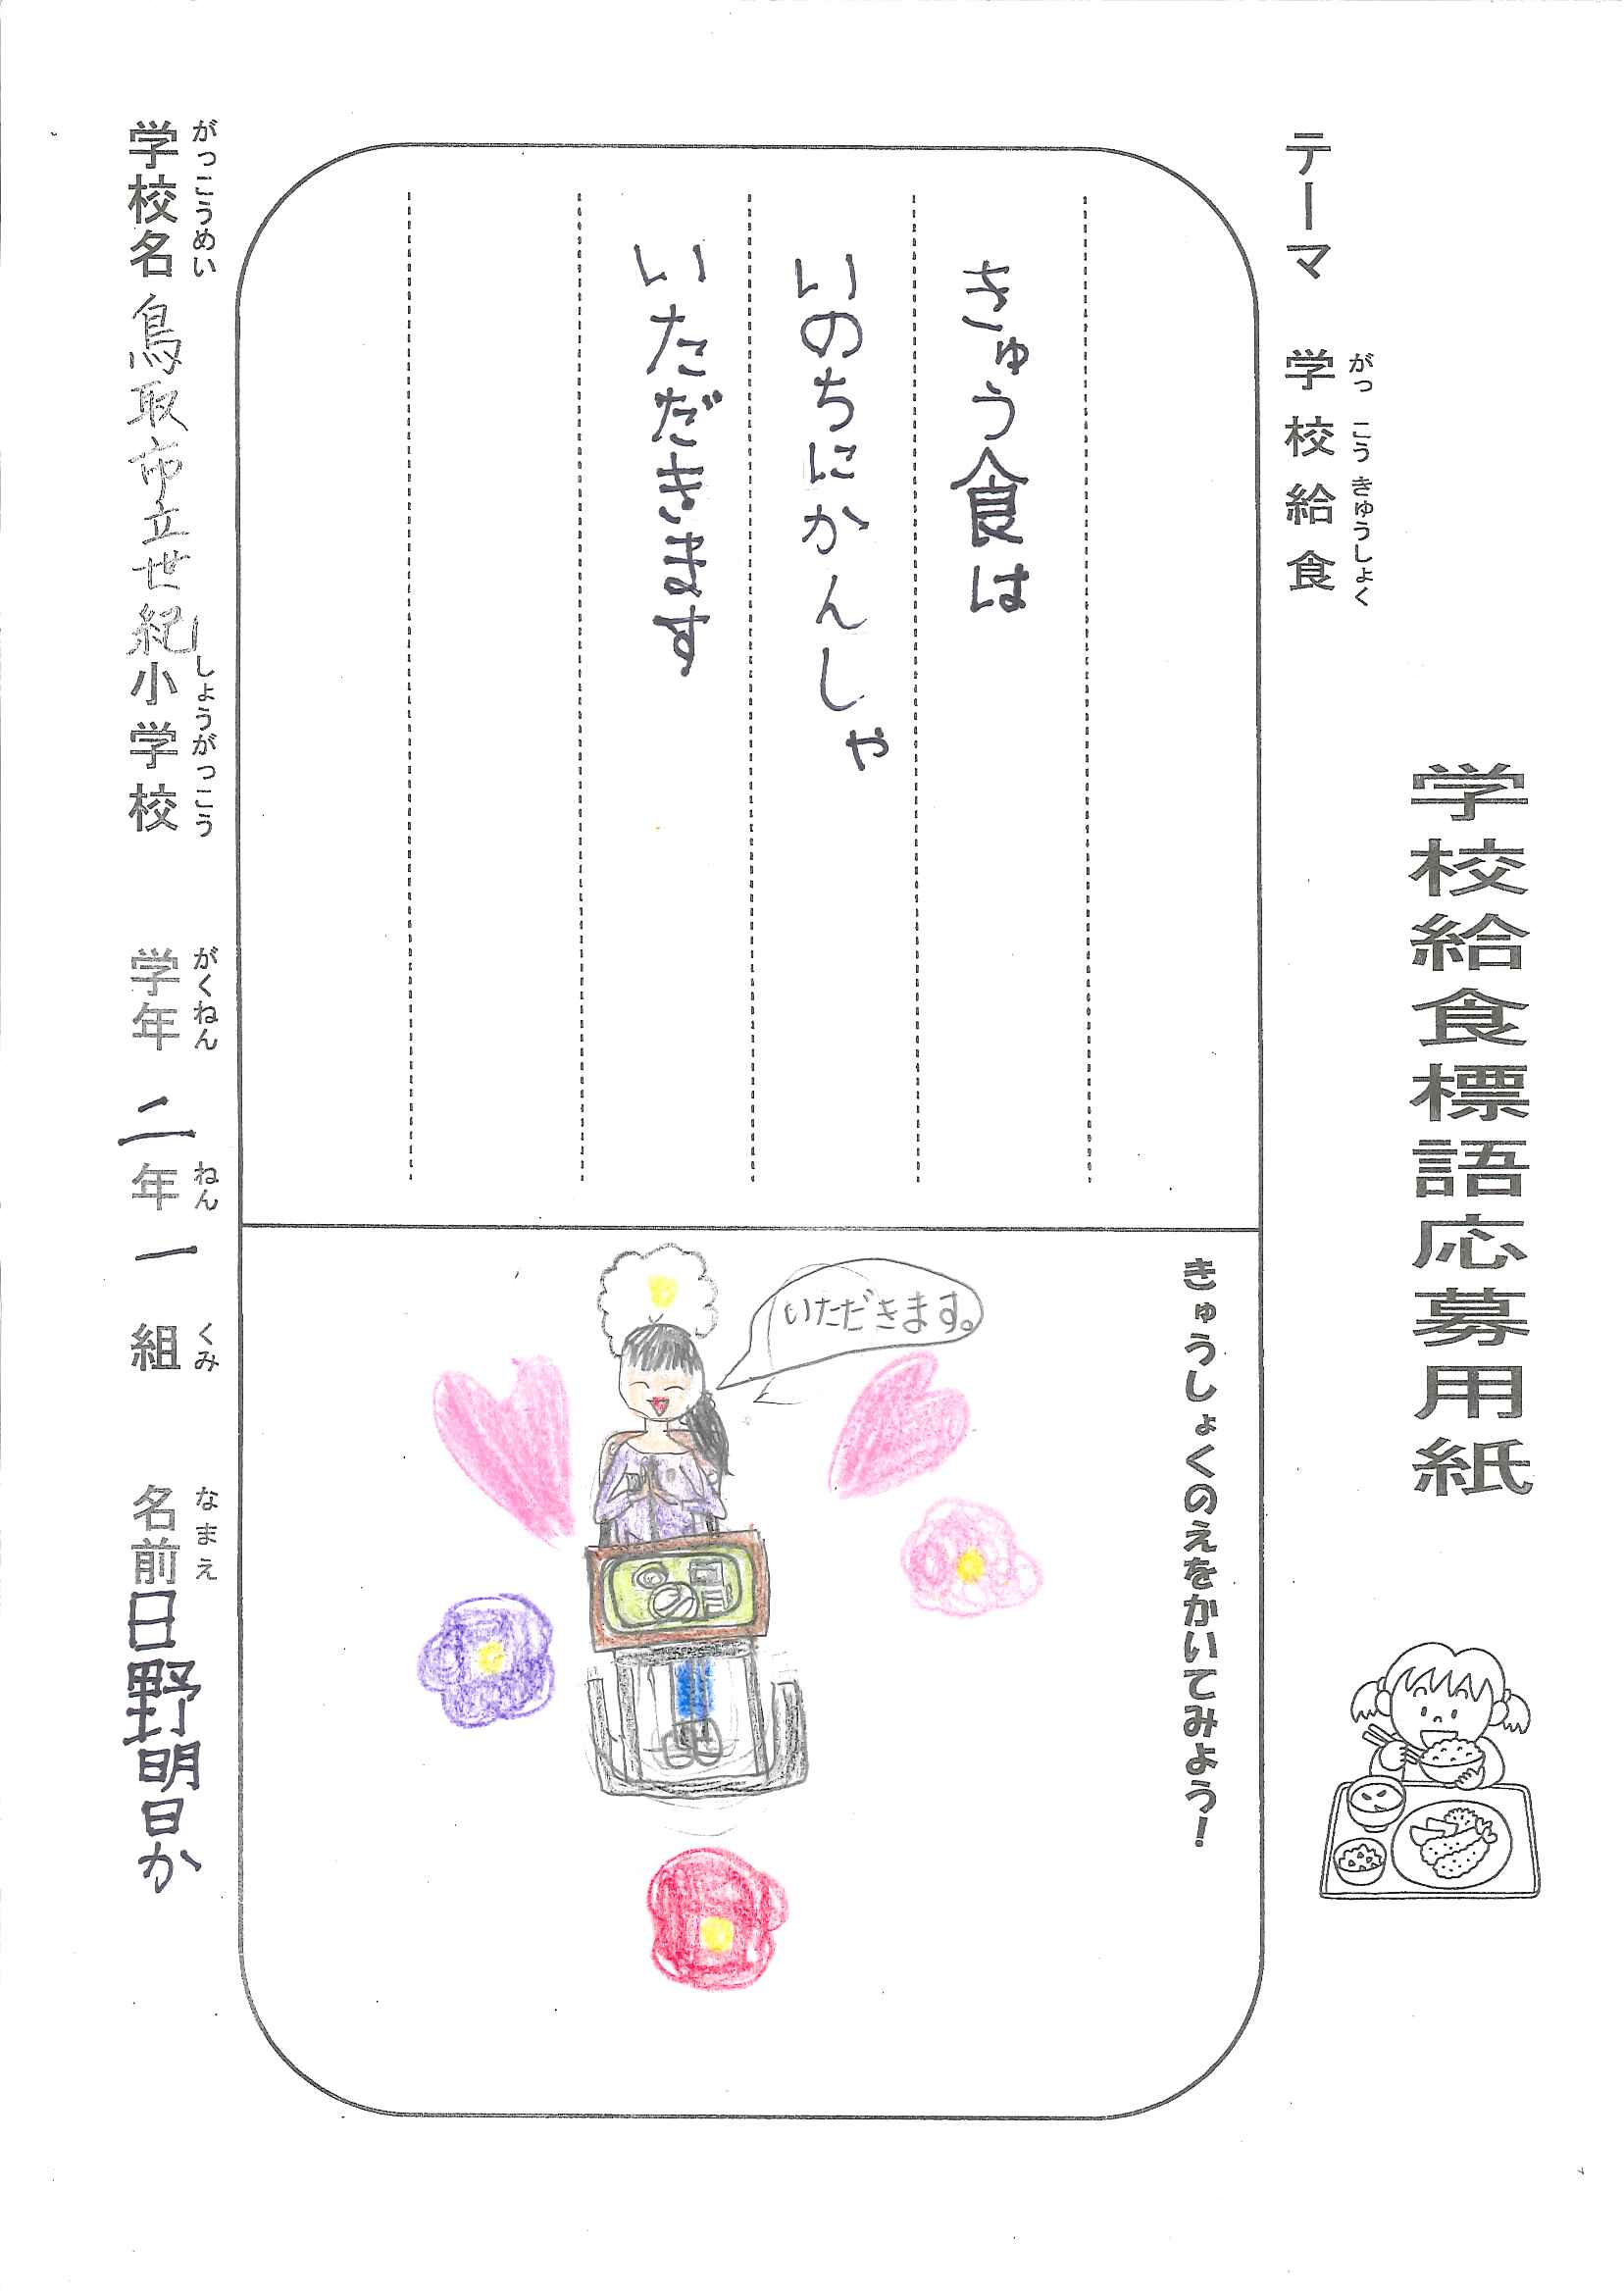 学校給食標語応募用紙
テーマ 学校給食
がっ こう きゅうしょく
きゅう食は
いのちにかんしゃ
いただきます
きゅうしょくのえをかいてみよう！
いただきます。
がっこうめい しょうがっこう がくねん ねん くみ なまえ
学校名 鳥取市立世紀小学校 学年 二年 一組 名前 日野明日か